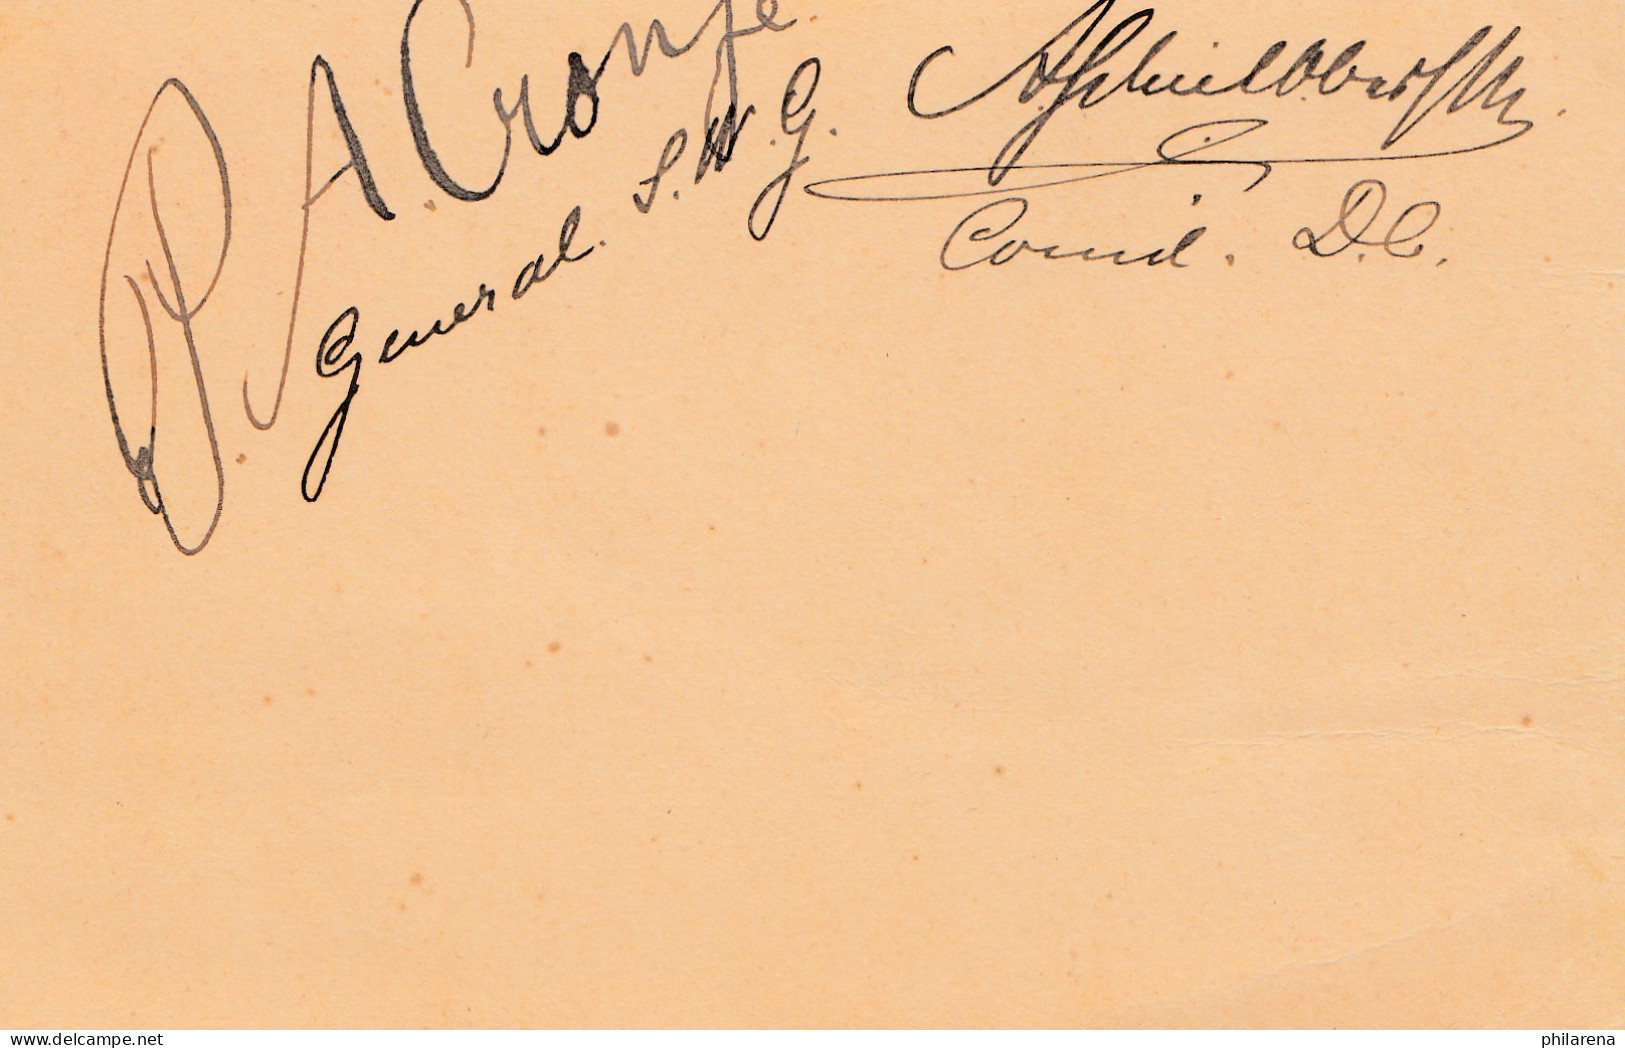 P. A. Cronje.
General. S. W. G.
A Schiel Oberstltn.
Comd. D. C.
www.delcampe.net
philarena